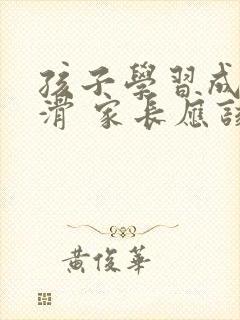 孩子學習成
滑 家長應該
黃俊華